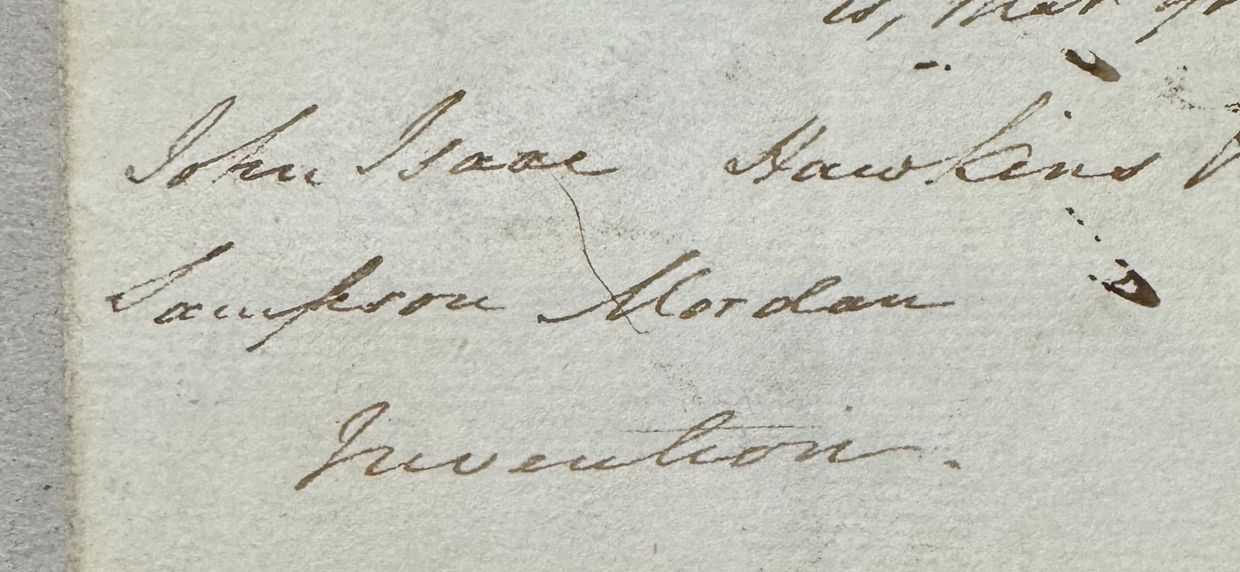 John Isaac Hawkins
Sampson Mordan
Invention.